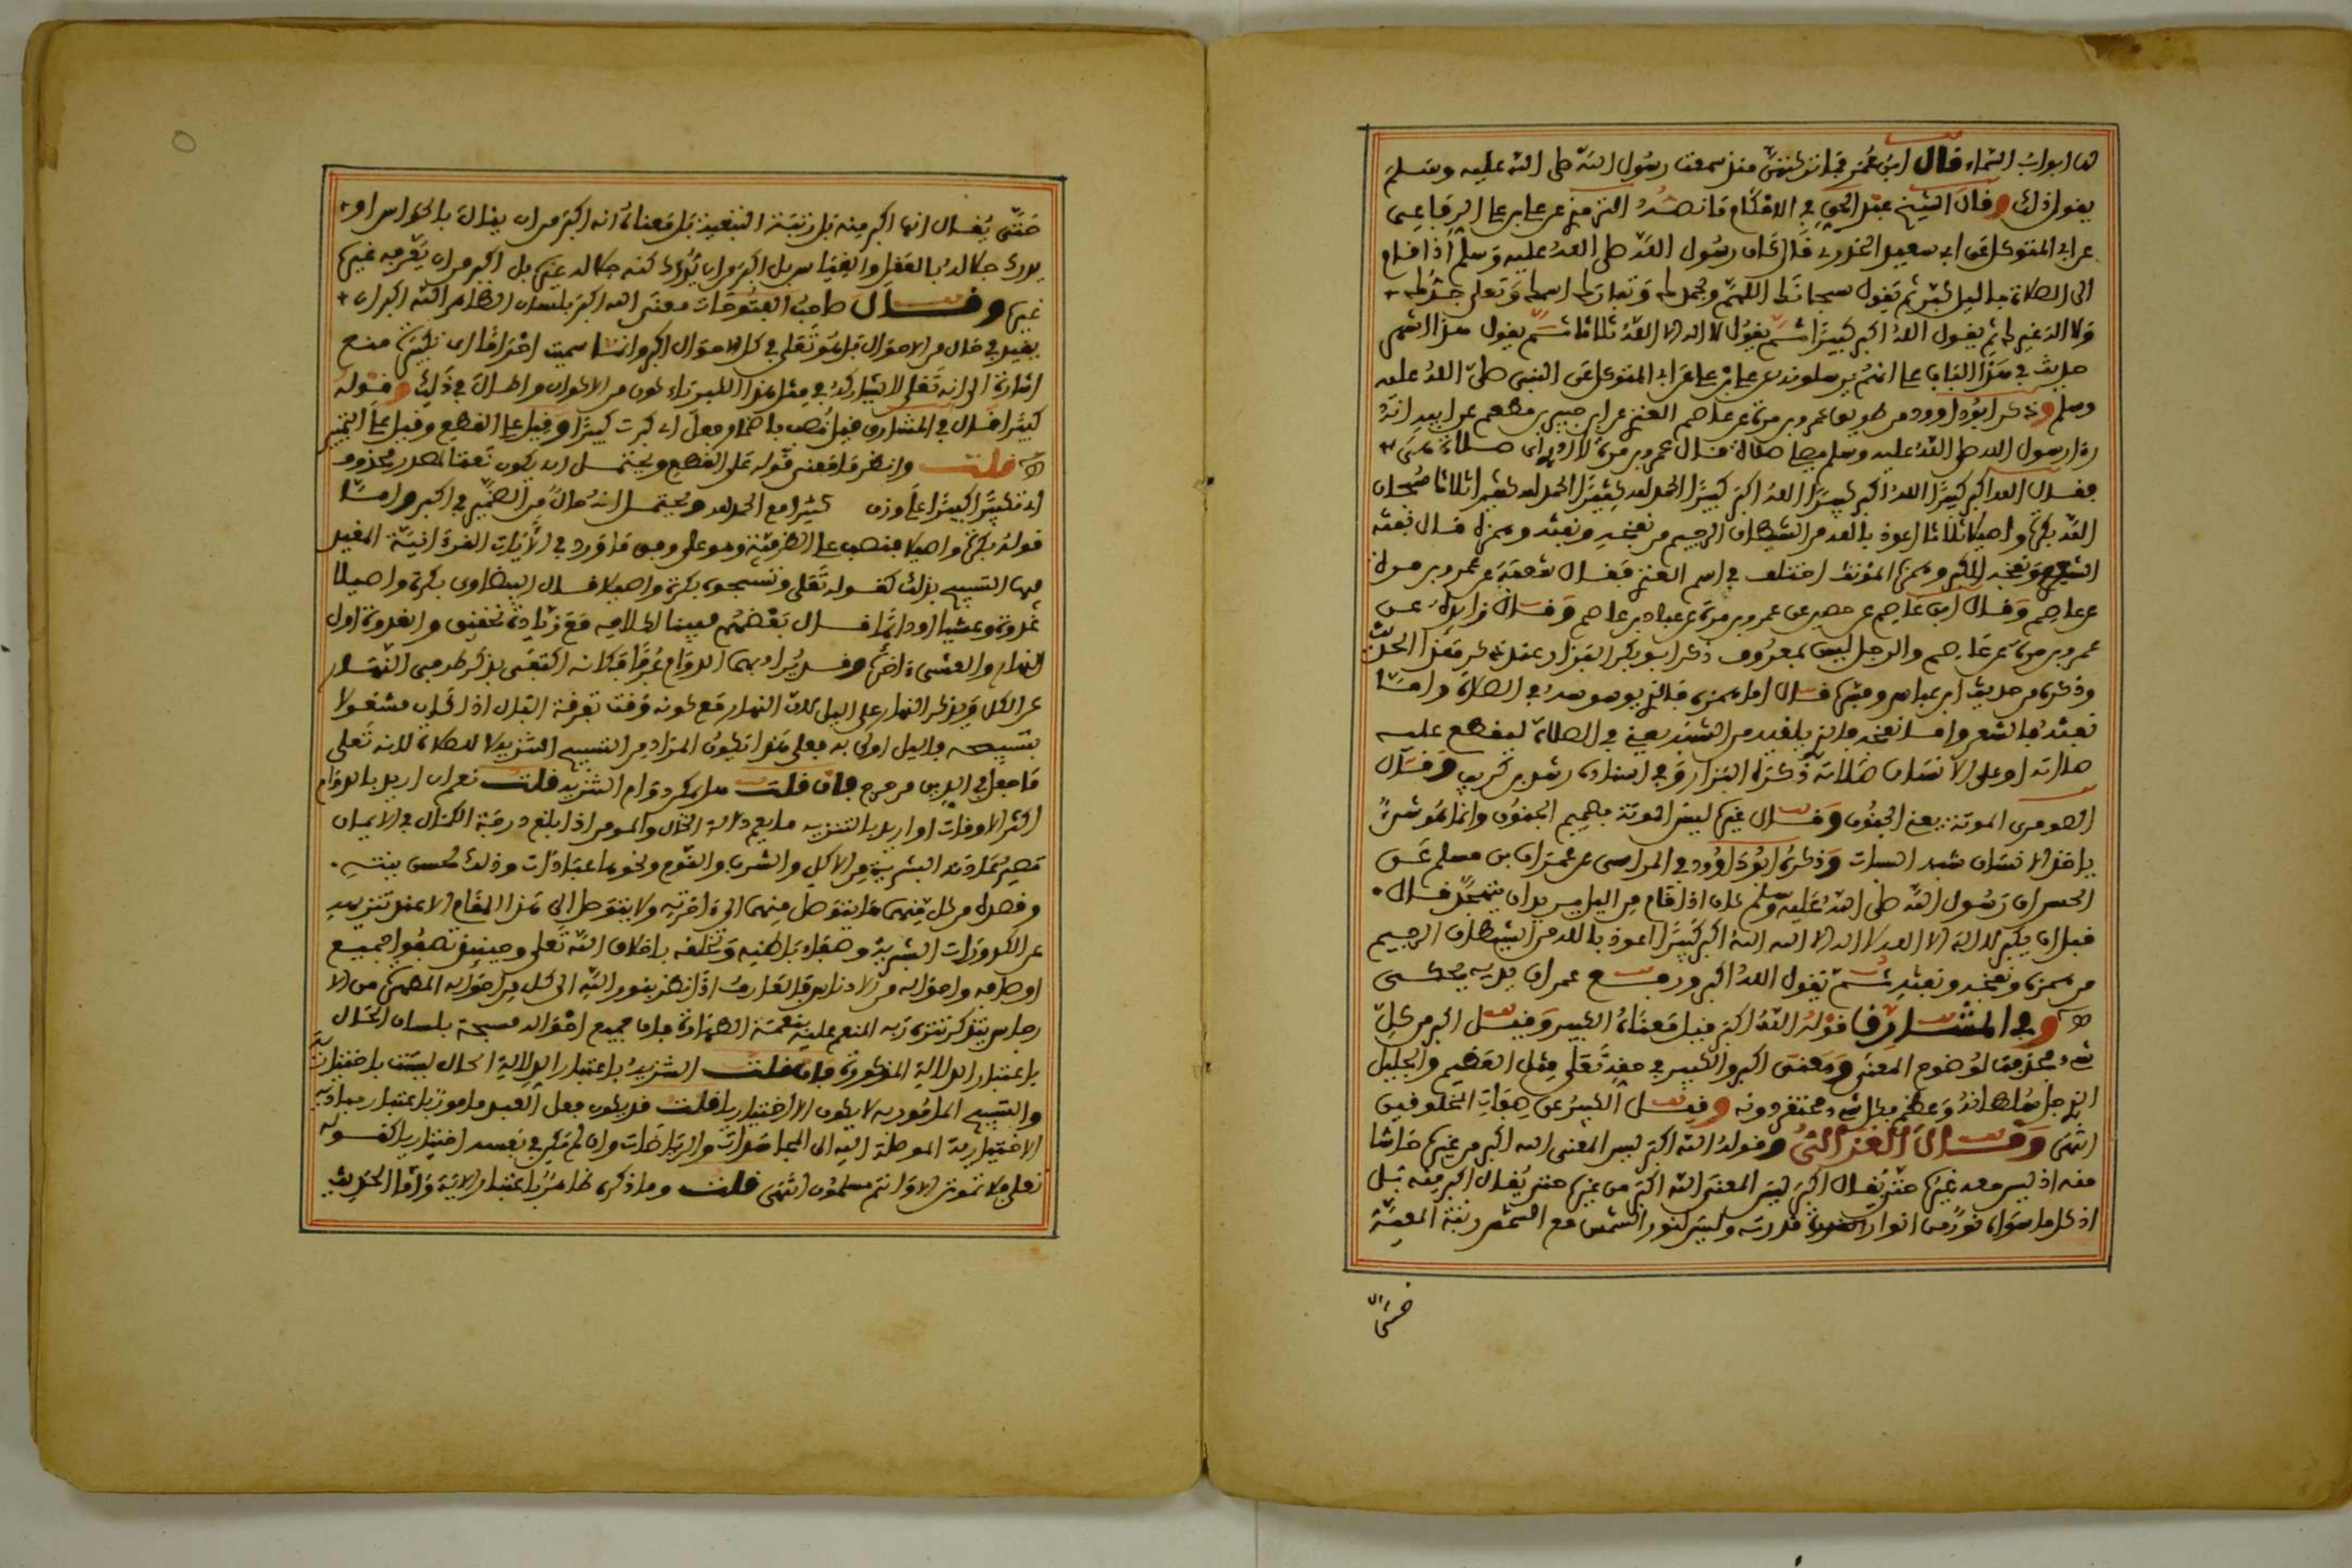 لها ابواب السماء قال ابن عمر فما تركتهن منذ سمعت رسول الله صلى الله عليه وسلم
يقول ذلك وقال الشيخ عبد الحق في الاحكام ما نصه الترمذي عن علي بن علي الرفاعي
عن ابي المتوكل عن ابي سعيد الخدري قال كان رسول الله صلى الله عليه وسلم اذا قام
الى الصلاة بالليل كبر ثم يقول سبحانك اللهم وبحمدك وتبارك اسمك وتعلى جدك
ولا اله غيرك ثم يقول الله اكبر كبيرا ثم يقول لا اله الا الله ثلاثا ثم يقول هذا اشهر
حديث في هذا الباب على انهم يرسلونه عن علي بن علي عن ابي المتوكل عن النبي صلى الله عليه
وسلم وذكر ابو داوود من طريق عمرو بن مرة عن عاصم العنزي عن ابن جبير بن مطعم عن ابيه انه
رءا رسول الله صلى الله عليه وسلم يصلي صلاة قال عمرو بن مرة لا ادري اي صلاة هي
فقال الله اكبر كبيرا الله اكبر كبيرا الله اكبر كبيرا الحمد لله كثيرا الحمد لله كثيرا ثلاثا سبحان
الله بكرة واصيلا ثلاثا اعوذ بالله من الشيطان الرجيم من نفخه ونفثه وهمزه قال نفثه
الشعر ونفخه الكبر وهمزه الموتة اختلف في اسم العنزي فقال شعبة عن عمرو بن مرة
عن عاصم وقال ابن عاصم عن حصين عن عمرو بن مرة عن عباد بن عاصم وقال زايدة عن
عمرو بن مرة عن عاصم والرجل ليس بمعروف ذكر ابو بكر البزار عند ذكر هذا الحديث
وذكره من حديث ابن عباس وفيه قال اما همزه فالذي يوسوسه في الصلاة واما
نفثه فالشعر واما نفخه فالذي يلقيه من الشبه يعني في الصلاة ليقطع عليه
صلاته او على الانسان صلاته ذكره البزار وفي اسناده رشدين بن كريب وقال
الهروي الموتة يعني الجنون وقال غيره ليس الموتة بصميم الجنون وانما هو شيء
ياخذ الانسان شبه السبات وذكر ابو داوود في المراسل عن عمران بن مسلم عن
الحسن ان رسول الله صلى الله عليه وسلم كان اذا قام من الليل يريد ان يتهجد قال
قبل ان يكبر لا اله الا الله لا اله الا الله الله اكبر كبيرا اعوذ بالله من الشيطان الرجيم
من همزه ونفخه ونفثه ثم يقول الله اكبر ورفع عمران يديه يحكي
وفي المشارق قوله الله اكبر قيل معناه الكبير وقيل اكبر من كل
شيء فحذفت لوضوح المعنى ومعنى اكبر والكبير في حقه تعلى مثل العظيم والجليل
الذي جل سلطانه وعظم فكل شيء محتقر دونه وقيل الكبير عن صفات المخلوقين
انتهى وقال الغزالي وقوله الله اكبر ليس المعنى انه اكبر من غيره
معه اذ ليس معه غيره حتى يقال اكبر ليس المعنى الله اكبر من غيره حتى يقال اكبر منه بل
اذ كل ما سواه نور من انوار قدرته وليس لنور الشمس مع الشمس رتبة المعية
حتى
حتى يقال انها اكبر منه بل رتبة التبعية بل معناه انه اكبر من ان ينال بالحواس او
يدرك جلاله بالعقل والقياس بل اكبر من ان يدرك كنه جلاله غيره بل اكبر من ان يعرفه غيره
وقال صاحب الفتوحات معنى الله اكبر بلسان الظاهر الله اكبر ان
يقيد في حال من الاحوال بل هو تعلى في كل الاحوال اكبر وانما سميت احراما اي تكبيرة منع
اشارة الى انه تعلى لا يشاركه في مثل هذا الكبرياء كون من الاكوان واطال في ذلك وقوله
كبيرا قال في المشارق قيل نصب باضمار فعل اي كبرت كبيرا وقيل على القطع وقيل على التمييز
قلت وانظر ما معنى قوله على القطع ويحتمل ان يكون نعتا لمصدر محذوف
اي تكبيرا كبيرا على وزن كثيرا مع الحمد لله ويحتمل انه حال من الضمير في اكبر واما
قوله بكرة واصيلا فنصب على الظرفية وهو على وفق ما ورد في الايات القرءانية المقيد
فيها التسبيح بذلك كقوله تعلى وتسبحوه بكرة واصيلا قال البيضاوي بكرة واصيلا
غدوة وعشيا او دائما قال بعضهم مبينا لكلامه مع زيادة تحقيق والغدوة اول
النهار والعشي ءاخره وقد يراد بهما الدوام عرفا فكانه اكتفى بذكر طرفي النهار
عن الكل وبذكر النهار على الليل لان النهار مع كونه وقت تفرقة البال اذا كان مشغولا
بتسبيحه فالليل اولى به فعلى هذا يكون المراد من التسبيح التنزيه لا الصلاة لانه تعلى
ما جعل في الدين من حرج فان قلت هل يمكن دوام التنزيه قلت نعم ان اريد بالدوام
اكثر الاوقات او اريد بالتنزيه ما يعم دلالة الحال والمومن اذا بلغ درجة الكمال في الايمان
تصير عاداته البشرية من الاكل والشرب والنوم ونحوها عبادات وذلك بحسن نيته
وقصده من كل منهما ما يتوصل منهما الى ءاخرته ولا يتوصل الى هذا المقام الا بعد تنزيهه
عن الكدورات البشرية وصفاء باطنه وتخلقه باخلاق الله تعلى وحينئذ تصفوا جميع
اوصافه واحواله من الادناس فالعارف اذا نظر بنور الله الى كل من احواله المطهرة من الا
رجاس يتذكر تنزه ربه المنعم عليه بنعمة الطهارة فان جميع احواله مسبحة بلسان الحال
باعتبار الدلالة المذكورة فان قلت التنزيه باعتبار الدلالة الحال ليست باختيارية
والتسبيح المامور به لا يكون الا اختياريا قلت قد يكون فعل العبد مامورا باعتبار مباديه
الاختيارية الموصلة اليه الى المجاهدات والرياضات وان لم يكن في نفسه اختياريا كقوله
تعلى فلا تموتن الا وانتم مسلمون انتهى قلت وما ذكره ظاهر باعتبار الاية واما الحديث